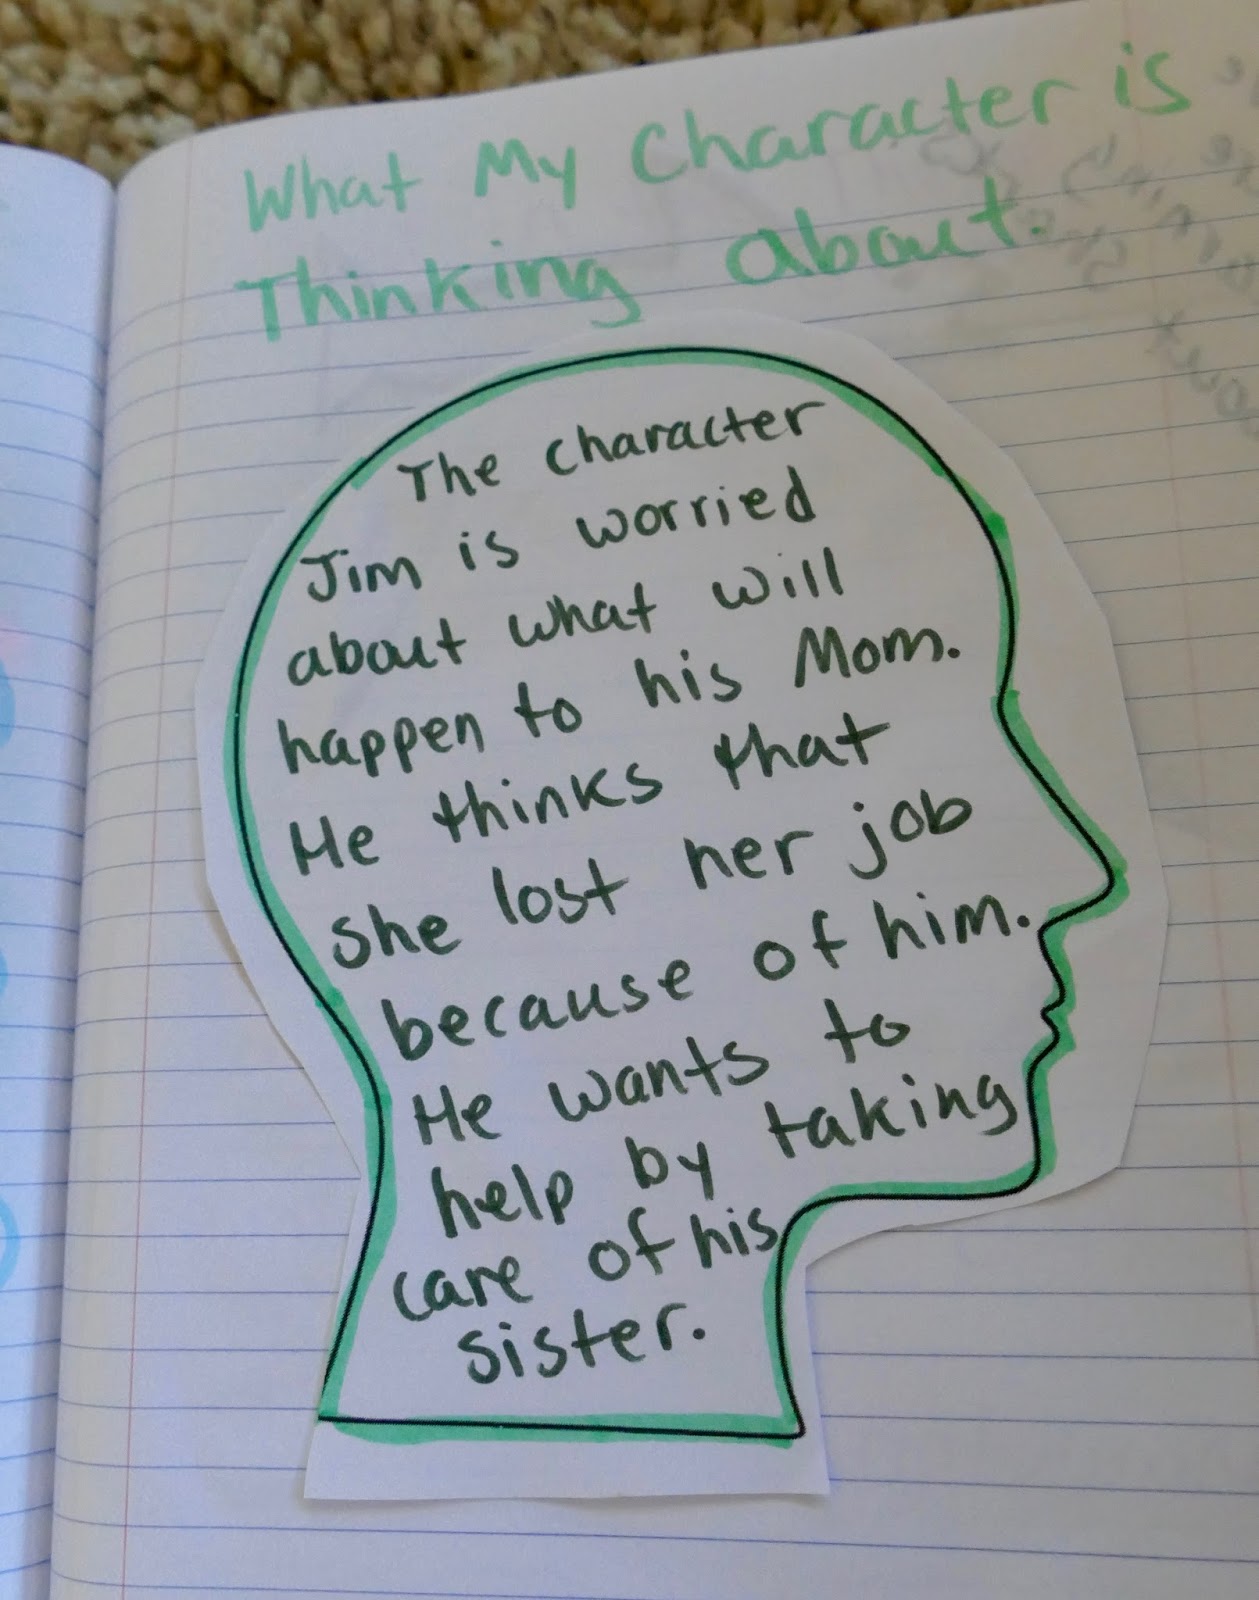 What My Character is
Thinking about.
The character
Jim is worried
about what will
happen to his Mom.
He thinks that
she lost her job
because of him.
He wants to
help by taking
care of his
sister.